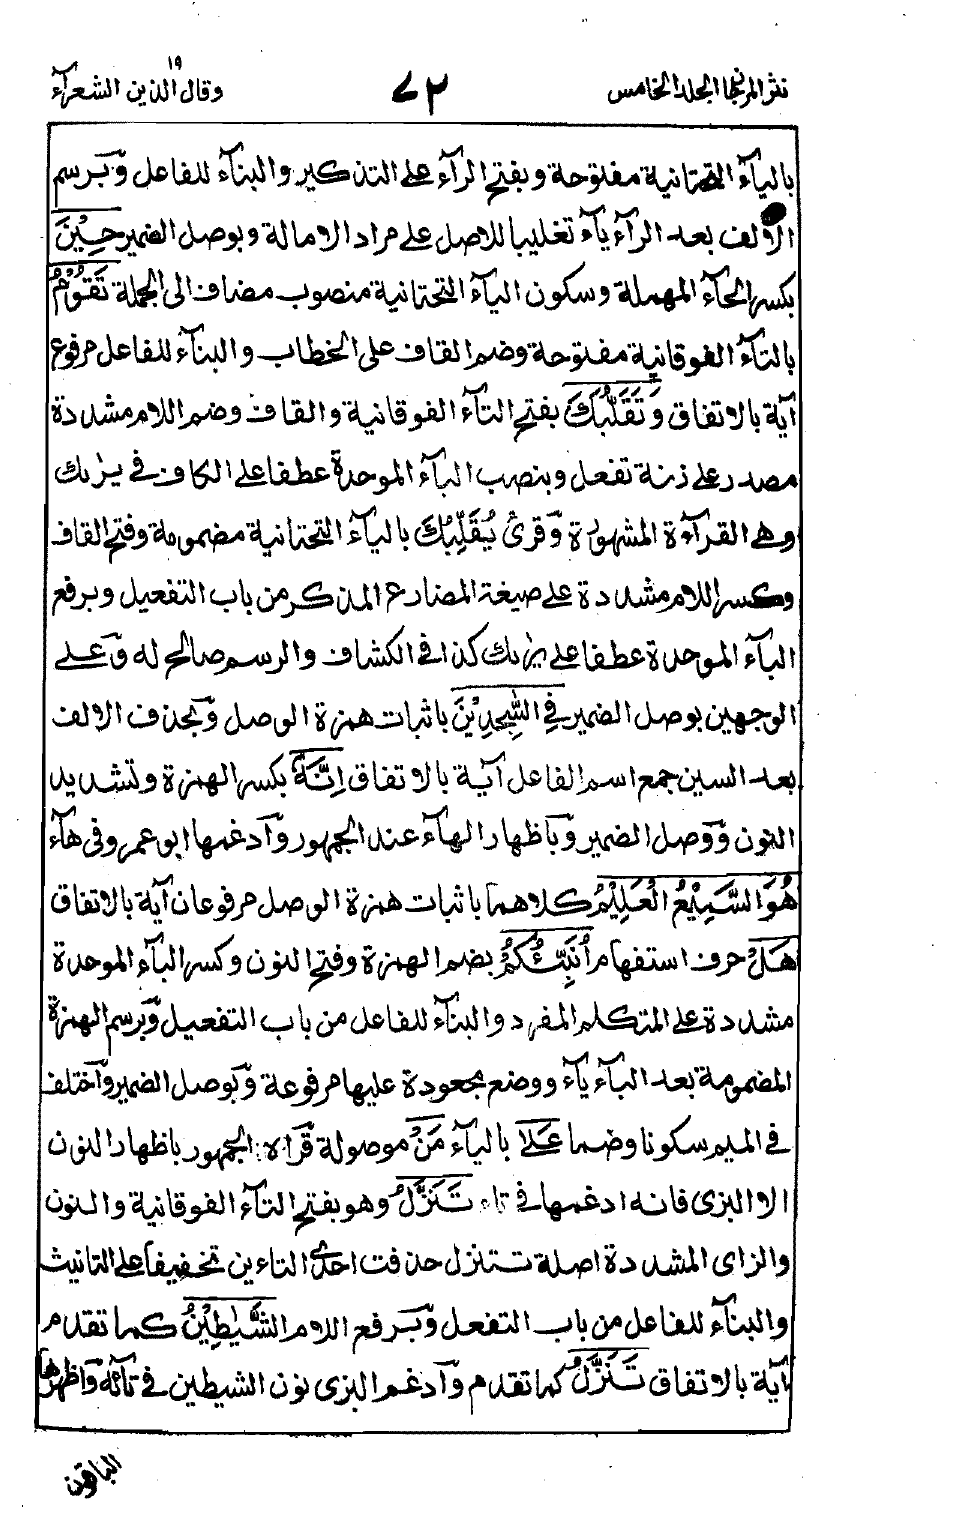 نثر المرجان المجلد الخامس ٧٢ وقال الذين ١٩ الشعرآء
بالياۤء التحتانية مفتوحة وبفتح الرآء على التذكير والبنآء للفاعل وَبرسم
الالف بعد الرآء يآء تغليبا للاصل على مراد الامالة وبوصل الضمير حِيْنَ
بكسر الحآء المهملة وسكون اليآء التحتانية منصوب مضاف الى الجملة تَقُوْمُ
بالتآء الفوقانية مفتوحة وضم القاف على الخطاب والبنآء للفاعل مرفوع
آية بالاتفاق وَتَقَلُّبَكَ بفتح التآء الفوقانية والقاف وضم اللام مشددة
مصدر على زنة تفعل وبنصب البآء الموحدة عطفا على الكاف في يرىك
وهي القرآءة المشهورة وَقرئ يُقَلِّبُكَ باليآء التحتانية مضمومة وفتح القاف
وكسر اللام مشددة على صيغة المضارع المذكر من باب التفعيل وبرفع
البآء الموحدة عطفا على يرىك كذا في الكشاف والرسم صالح له وَعلى
الوجهين بوصل الضمير فِي السّٰجِدِيْنَ باثبات همزة الوصل وَبحذف الالف
بعد السين جمع اسم الفاعل آية بالاتفاق اِنَّهٗ بكسر الهمزة وتشديد
النون وَوصل الضمير وَباظهار الهآء عند الجمهور وَآدغمها ابو عمرو في هآء
هُوَ السَّمِيْعُ الْعَلِيْمُ كلاهما باثبات همزة الوصل مرفوعان آية بالاتفاق
هَلْ حرف استفهام اُنَبِّئُكُمْ بضم الهمزة وفتح النون وكسر البآء الموحدة
مشددة على المتكلم المفرد والبنآء للفاعل من باب التفعيل وَبرسم الهمزة
المضمومة بعد البآء يآء ووضع مجعودة عليها مرفوعة وَبوصل الضمير وَآختلف
في الميم سكونا وضما عَلٰى باليآء مَنْ موصولة قرأه الجمهور باظهار النون
الا البزى فانه ادغمها في تاء تَنَزَّلُ وهو بفتح التآء الفوقانية والنون
والزاى المشددة اصله تتنزل حذفت احدى التاءين تخفيفا على التانيث
والبنآء للفاعل من باب التفعل وَبرفع اللام الشَّيٰطِيْنُ كما تقدم
آية بالاتفاق تَنَزَّلُ كما تقدم وَآدغم البزى نون الشيطين في تائه وَآظهرها
الباقون